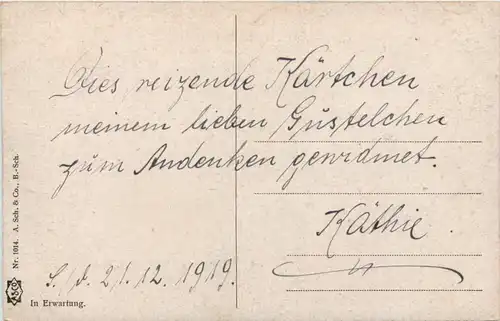 Dies reizende Kärtchen
meinem lieben Gustelchen
zum Andenken gewidmet.
Käthie.
S./d. 21.12.1919.
Nr. 1014. A. Sch. & Co., B.-Sch.
In Erwartung.